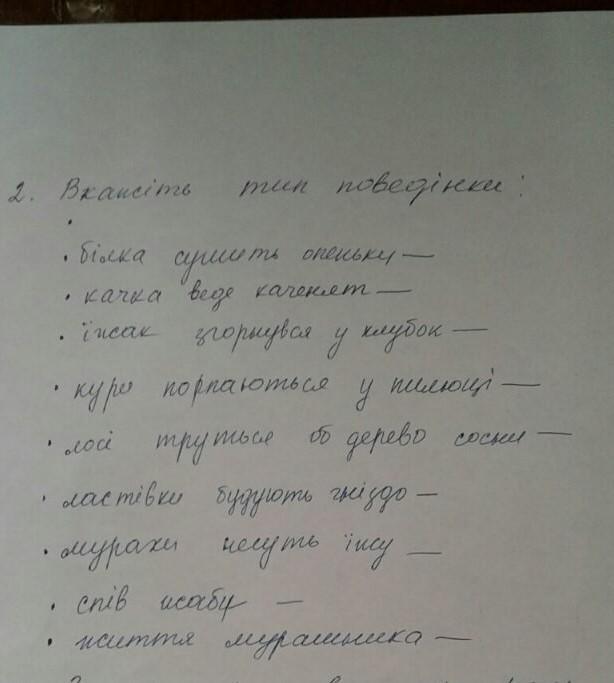 2. Вкажіть тип поведінки:
•
• білка сушить опеньку —
• качка веде каченят —
• їжак згорнувся у клубок —
• кури порпаються у пилюці —
• лосі труться об дерево сосни —
• ластівки будують гніздо —
• мурахи несуть їжу —
• спів жаби —
• життя мурашника —